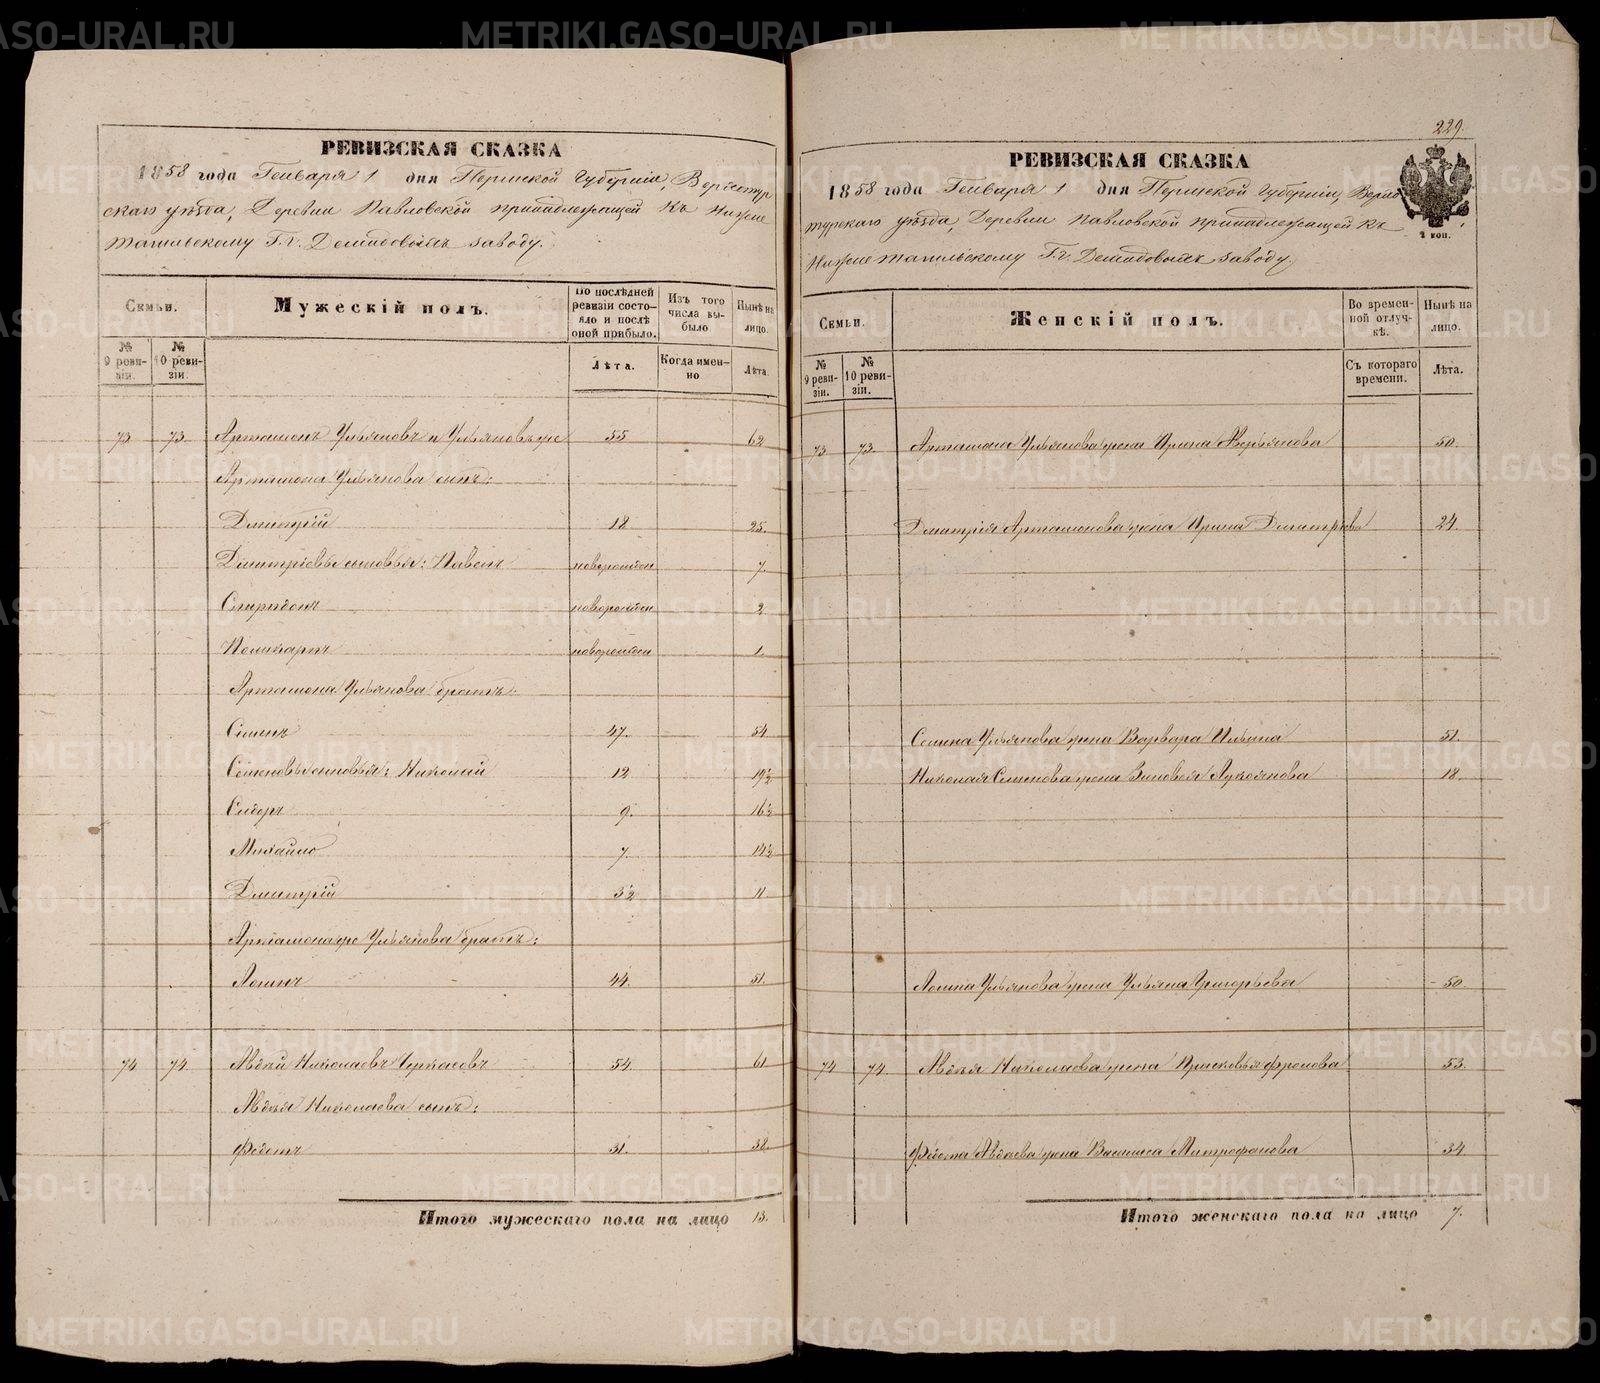 РЕВИЗСКАЯ СКАЗКА
1858 года Генваря 1 дня Пермской Губерніи, Верхотур
скаго уѣзда, Деревни Павловской принадлежащей къ Нижне
тагильскому Г.г. Демидовыхъ заводу.
Семьи.
Мужескій полъ.
По послѣдней ревизіи состояло и послѣ оной прибыло.
Изъ того числа выбыло.
Нынѣ на лицо.
№ 9 ревизіи.
№ 10 ревизіи.
Лѣта.
Когда именно
Лѣта.
73 73. Артамонъ Ульяновъ 55 62
Артамона Ульянова сынъ:
Дмитрій 18. 25.
Дмитріевы сыновья: новорожден 7.
Спиридонъ новорожден 2
Поликарпъ новорожден 1.
Артамона Ульянова братъ:
Семенъ 47. 54
Семеновы сыновья: Николай 12 19½
Сидоръ 9. 16½
Михайло 7. 14½
Дмитрій 3½ 11.
Артамона же Ульянова братъ:
Логинъ 44. 51.
74 74. Авдѣй Николаевъ Черкасовъ 54. 61
Авдѣя Николаева сынъ:
Федотъ 31. 38.
Итого мужескаго пола на лицо 13.
229.
РЕВИЗСКАЯ СКАЗКА
1858 года Генваря 1 дня Пермской Губерніи, Верхо
турскаго уѣзда, Деревни Павловской принадлежащей къ
Нижне тагильскому Г.г. Демидовыхъ заводу.
2 коп.
Семьи.
Женскій полъ.
Во временной отлучкѣ.
Нынѣ на лицо.
№ 9 ревизіи.
№ 10 ревизіи.
Съ котораго времени.
Лѣта.
73 73. Артамона Ульянова жена Ирина Аверьянова 50.
Дмитрія Артамонова жена Ирина Дмитріева 24.
Семена Ульянова жена Варвара Ильина 51.
Николая Семенова жена Зиновья Лукоянова 18.
Логина Ульянова жена Ульяна Григорьева 50.
74 74. Авдѣя Николаева жена Прасковья Фролова 53.
Федота Авдѣева жена Василиса Митрофанова 34
Итого женскаго пола на лицо 7.
METRIKI.GASO-URAL.RU